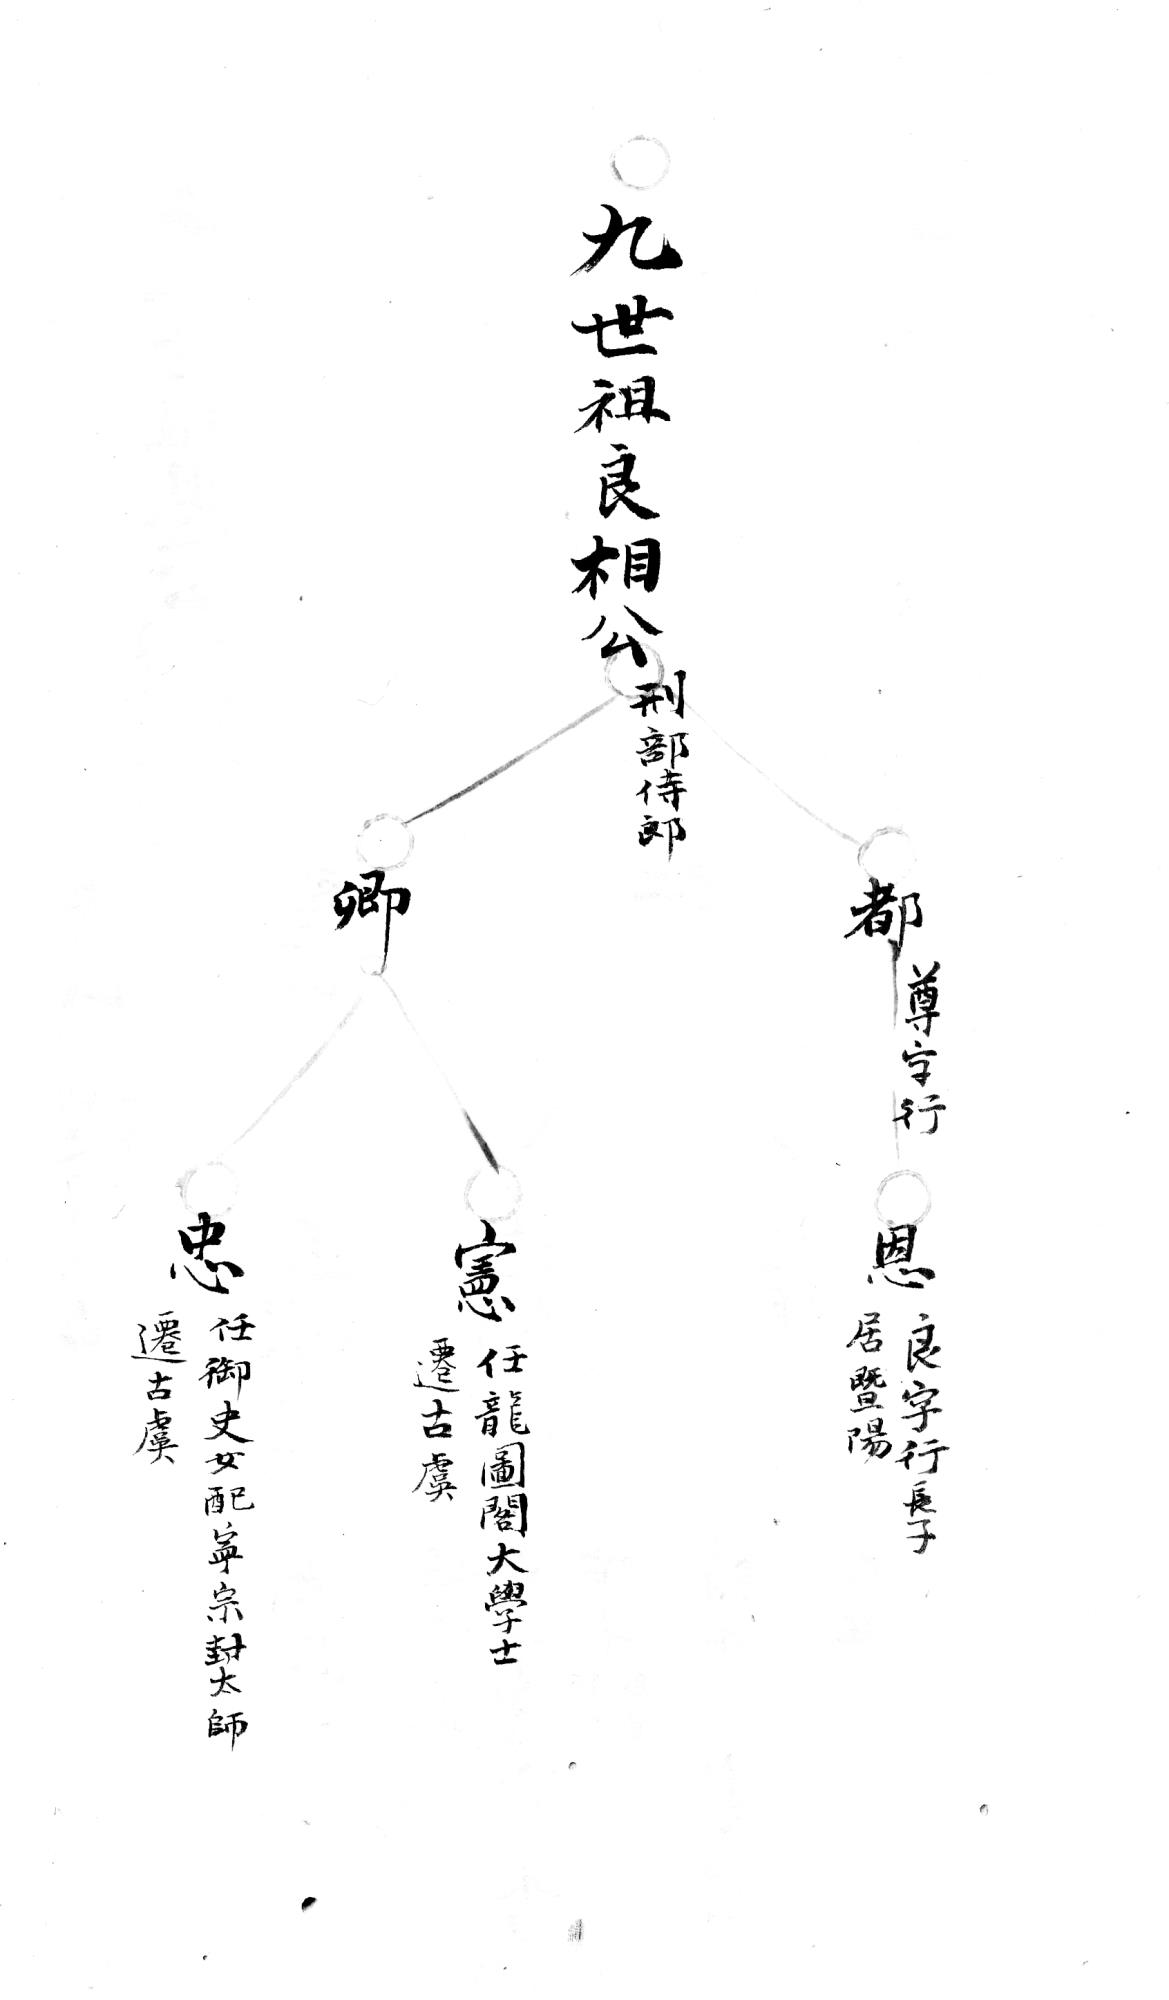 九世祖良相公
刑部侍郎
都
尊字行
卿
恩
良字行長子
居暨陽
憲
任龍圖閣大學士
遷古虞
忠
任御史女配寧宗封太師
遷古虞